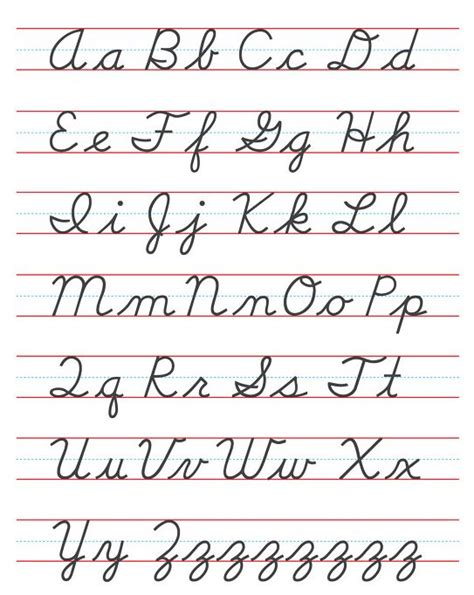 Aa Bb Cc Dd
Ee Ff Gg Hh
Ii Jj Kk Ll
Mm Nn Oo Pp
Qq Rr Ss Tt
Uu Vv Ww Xx
Yy Zzzzzzzz